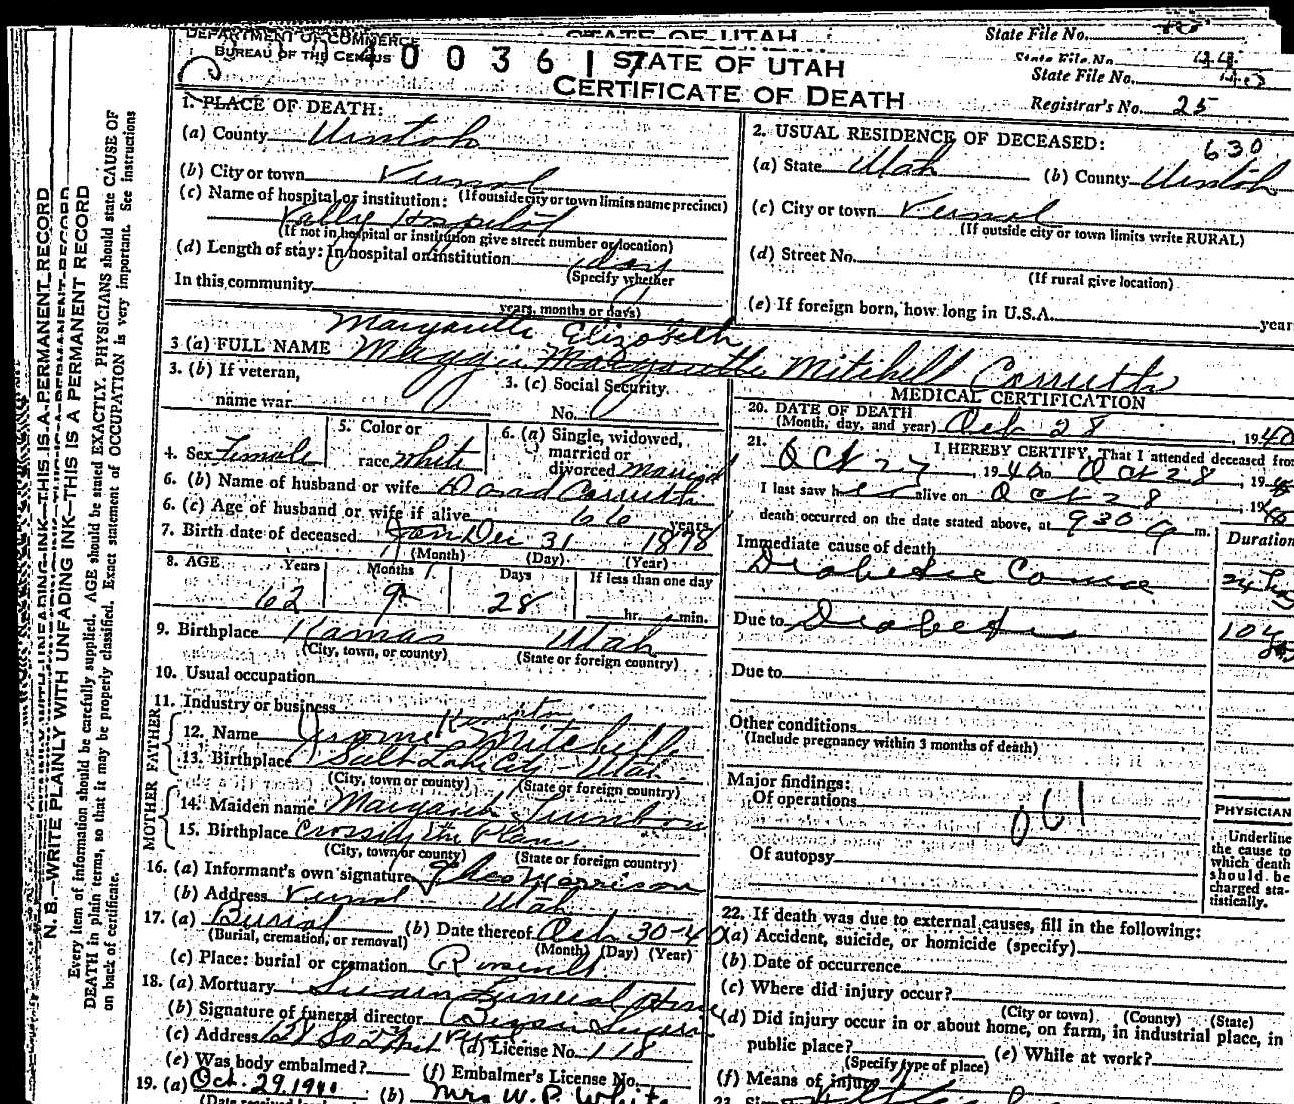 DEPARTMENT OF COMMERCE
BUREAU OF THE CENSUS
STATE OF UTAH
State File No.
0 0 3 6 1 7
STATE OF UTAH
State File No.
State File No.
CERTIFICATE OF DEATH
Registrar's No. 25
1. PLACE OF DEATH:
(a) County Uintah
(b) City or town Vernal
(If outside city or town limits name precinct)
(c) Name of hospital or institution:
Vally Hospital
(If not in hospital or institution give street number or location)
(d) Length of stay: In hospital or institution 1 day
(Specify whether
In this community
years, months or days)
2. USUAL RESIDENCE OF DECEASED:
630
(a) State Utah (b) County Uintah
(c) City or town Vernal
(If outside city or town limits write RURAL)
(d) Street No.
(If rural give location)
(e) If foreign born, how long in U.S.A. year
Elizabeth
3 (a) FULL NAME Maggie Mitchell Carruth
3. (b) If veteran,
name war
3. (c) Social Security
No.
4. Sex Female
5. Color or
race white
6. (a) Single, widowed,
married or
divorced married
6. (b) Name of husband or wife Carruth
6. (c) Age of husband or wife if alive 66 years
7. Birth date of deceased Jan Dec 31 1878
(Month) (Day) (Year)
8. AGE Years Months Days If less than one day
62 9 28 hr. min.
9. Birthplace Kamas Utah
(City, town, or county) (State or foreign country)
10. Usual occupation
11. Industry or business
FATHER
12. Name Jerome Mitchell
13. Birthplace Salt Lake City - Utah
(City, town or county) (State or foreign country)
MOTHER
14. Maiden name Margaret
15. Birthplace Crossing the Plains
(City, town or county) (State or foreign country)
16. (a) Informant's own signature Morrison
(b) Address Vernal Utah
17. (a) Burial (b) Date thereof Oct 30-40
(Burial, cremation, or removal) (Month) (Day) (Year)
(c) Place: burial or cremation
18. (a) Mortuary Funeral Home
(b) Signature of funeral director
(c) Address (d) License No. 118
(e) Was body embalmed? (f) Embalmer's License No.
19. (a) Oct. 29, 1940 (b) Mrs W. P. White
MEDICAL CERTIFICATION
20. DATE OF DEATH
(Month, day, and year) Oct 28, 1940
21. I HEREBY CERTIFY, That I attended deceased from
Oct 27, 1940 to Oct 28, 1940
I last saw her alive on Oct 28, 1940
death occurred on the date stated above, at 930 m.
Immediate cause of death
Duration
Diabetic Coma
24 hrs
Due to Diabetes
10 yrs
Due to
Other conditions
(Include pregnancy within 3 months of death)
Major findings:
Of operations
061
Of autopsy
PHYSICIAN
Underline
the cause to
which death
should be
charged sta-
tistically.
22. If death was due to external causes, fill in the following:
(a) Accident, suicide, or homicide (specify)
(b) Date of occurrence
(c) Where did injury occur?
(City or town) (County) (State)
(d) Did injury occur in or about home, on farm, in industrial place, in
public place? (e) While at work?
(Specify type of place)
(f) Means of injury
N. B.—WRITE PLAINLY WITH UNFADING INK—THIS IS A PERMANENT RECORD
Every item of information should be carefully supplied. AGE should be stated EXACTLY. PHYSICIANS should state CAUSE OF
DEATH in plain terms, so that it may be properly classified. Exact statement of OCCUPATION is very important. See instructions
on back of certificate.